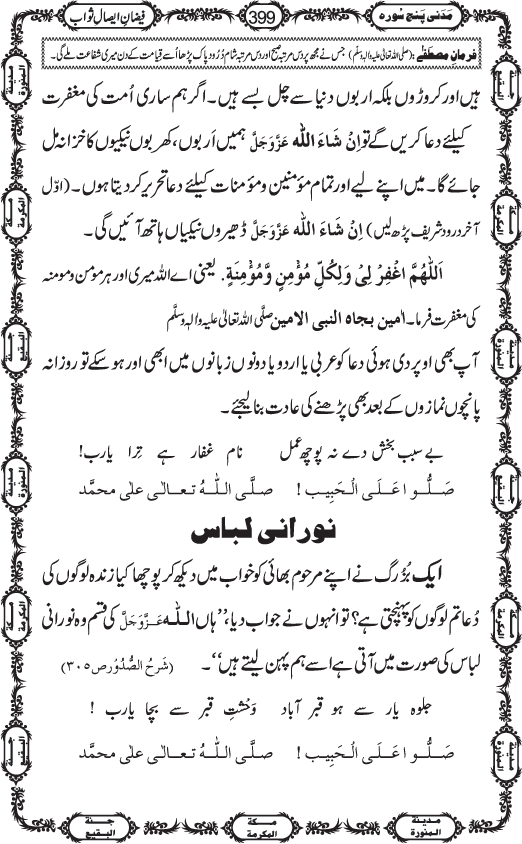 مَدَنی پنج سورہ
399
فیضانِ ایصالِ ثواب
فرمانِ مصطَفٰے : (صلی اللہ تعالیٰ علیہ والہٖ وسلّم) جس نے مجھ پر دس مرتبہ صبح اور دس مرتبہ شام دُرُودِ پاک پڑھا اُسے قیامت کے دن میری شفاعت ملے گی۔
ہیں اور کروڑوں بلکہ اربوں دنیا سے چل بسے ہیں۔ اگر ہم ساری اُمت کی مغفرت
کیلئے دعا کریں گے تو اِنْ شَاءَ اللّٰه عَزَّوَجَلَّ ہمیں اَربوں، کھربوں نیکیوں کا خزانہ مل
جائے گا۔ میں اپنے لیے اور تمام مؤمنین و مؤمنات کیلئے دعا تحریر کر دیتا ہوں۔ (اوّل
آخر درود شریف پڑھ لیں) اِنْ شَاءَ اللّٰه عَزَّوَجَلَّ ڈھیروں نیکیاں ہاتھ آئیں گی۔
اَللّٰهُمَّ اغْفِرْ لِیْ وَلِکُلِّ مُؤْمِنٍ وَّمُؤْمِنَةٍ. یعنی اے اللہ میری اور ہر مومن و مومنہ
کی مغفرت فرما۔ اٰمین بجاہ النبی الامین صلَّی اللہ تعالیٰ علیہ والہٖ وسلَّم
آپ بھی اوپر دی ہوئی دعا کو عربی یا اردو یا دونوں زبانوں میں ابھی اور ہو سکے تو روزانہ
پانچوں نمازوں کے بعد بھی پڑھنے کی عادت بنا لیجئے۔
بے سبب بخش دے نہ پوچھ عمل نام غفار ہے تِرا یارب!
صَلُّوا عَلَی الْحَبِیب ! صلَّی اللّٰهُ تعالٰی علٰی محمَّد
نورانی لباس
ایک بُزُرگ نے اپنے مرحوم بھائی کو خواب میں دیکھ کر پوچھا کیا زندہ لوگوں کی
دُعا تم لوگوں کو پہنچتی ہے؟ تو انہوں نے جواب دیا، ’’ہاں اللّٰه عَزَّوَجَلَّ کی قسم وہ نورانی
لباس کی صورت میں آتی ہے اسے ہم پہن لیتے ہیں‘‘۔ (شَرْحُ الصُّدُور ص ۳۰۵)
جلوہ یار سے ہو قبر آباد وَحْشتِ قبر سے بچا یارب !
صَلُّوا عَلَی الْحَبِیب ! صلَّی اللّٰهُ تعالٰی علٰی محمَّد
مدینۃ المنورۃ
مکۃ المکرمۃ
جنۃ البقیع
مدینۃ المنورۃ
مکۃ المکرمۃ
جنۃ البقیع
جنۃ البقیع
مکۃ المکرمۃ
مدینۃ المنورۃ
جنۃ البقیع
مکۃ المکرمۃ
مدینۃ المنورۃ
جنۃ البقیع
مکۃ المکرمۃ
مدینۃ المنورۃ